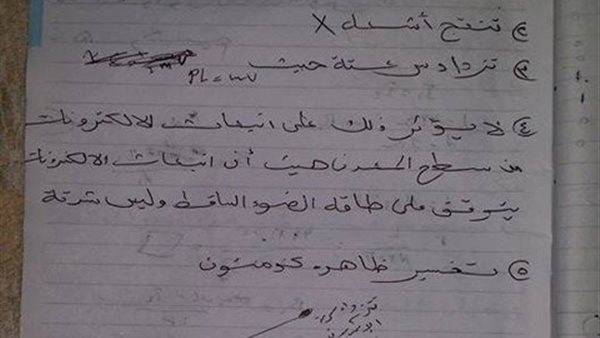 ② تنتج أشعة X
③ تزداد سرعته حيث
PL = mV
④ لا يؤثر ذلك على انبعاث الالكترونات
من سطح المعدن حيث أن انبعاث الالكترونات
يتوقف على طاقة الضوء الساقط وليس شدته
⑤ تفسير ظاهرة كومتون